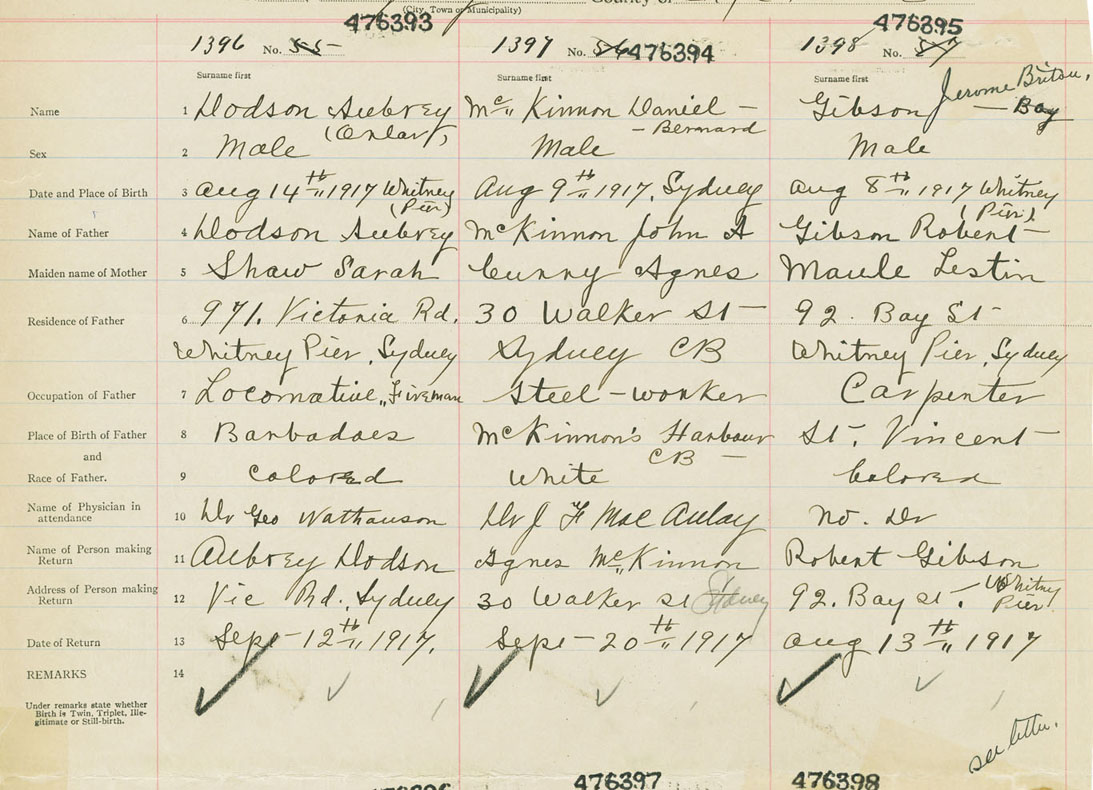 (City, Town or Municipality)
476393
476395
1396 No. 55
1397 No. 56 476394
1398 No. 57
Surname first
Surname first
Surname first
Jerome Britsu.
Name 1 Dodson Aubrey
(Onlay)
Mc Kinnon Daniel —
— Bernard
Gibson — Boy
Sex 2 Male Male Male
Date and Place of Birth 3 Aug 14th 1917 Whitney
(Pier)
Aug 9th 1917, Sydney
Aug 8th 1917 Whitney
(Pier)
Name of Father 4 Dodson Aubrey McKinnon John A Gibson Robert
Maiden name of Mother 5 Shaw Sarah Curry Agnes Maule Lestin
Residence of Father 6 971. Victoria Rd. 30 Walker St 92. Bay St
Whitney Pier, Sydney Sydney CB Whitney Pier, Sydney
Occupation of Father 7 Locomative Fireman Steel-worker Carpenter
Place of Birth of Father 8 Barbadoes McKinnon's Harbour St. Vincent
and CB —
Race of Father. 9 Colored White Colored
Name of Physician in
attendance 10 Dr Geo Nathanson Dr J F MacAulay No. Dr
Name of Person making
Return 11 Aubrey Dodson Agnes McKinnon Robert Gibson
Address of Person making
Return 12 Vic Rd., Sydney 30 Walker st Sydney 92. Bay st. Whitney
Pier
Date of Return 13 Sept 12th 1917. Sept 20th 1917 Aug 13th 1917
REMARKS 14
Under remarks state whether
Birth is Twin, Triplet, Ille-
gitimate or Still-birth.
see letter.
476397
476398